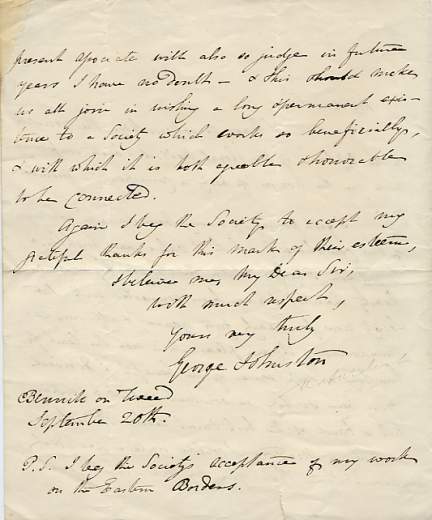 present associate will also so judge in future
years I have no doubt — & this should make
us all join in wishing a long & permanent exis-
tence to a Society which works so beneficially,
& with which it is both agreeable & honorable
to be connected.
Again I beg the Society to accept my
grateful thanks for this mark of their esteem,
& believe me, My Dear Sir,
with much respect,
Yours very truly
George Johnston
Berwick on Tweed
September 20th.
P.S. I beg the Society's acceptance of my work
on the Eastern Borders.